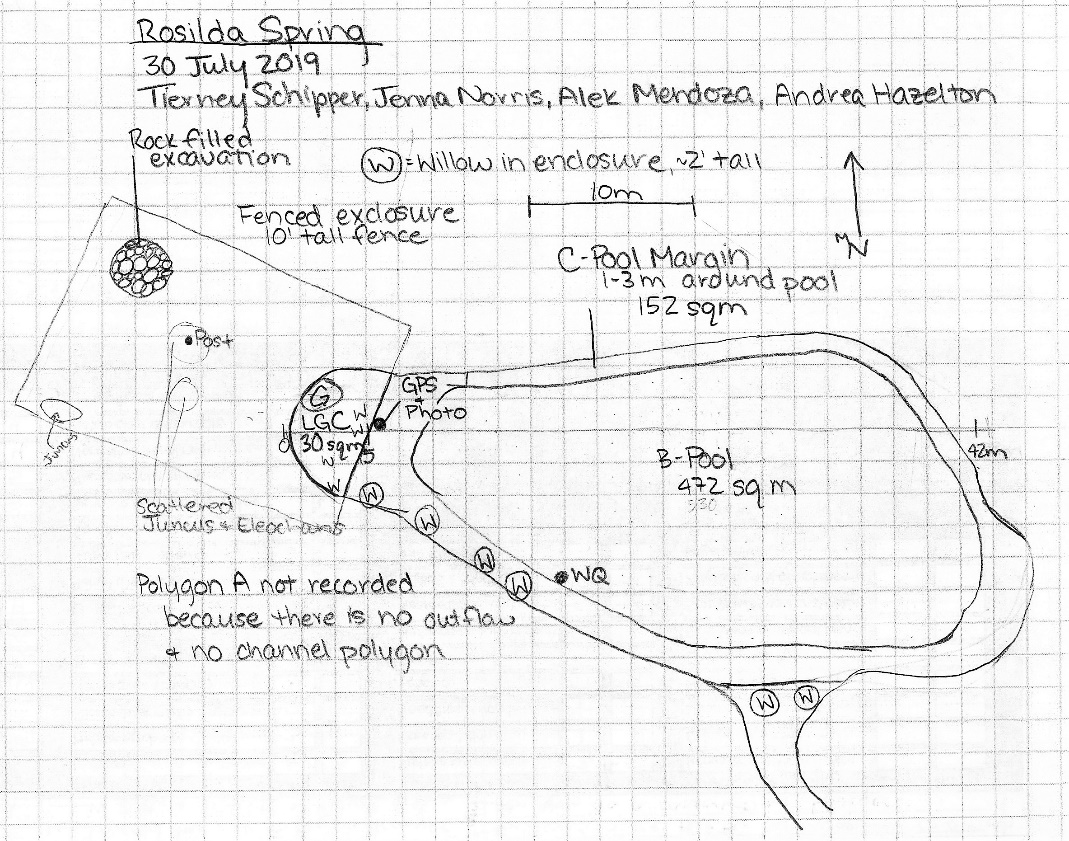 Rosilda Spring
30 July 2019
Tierney Schipper, Jenna Norris, Alek Mendoza, Andrea Hazelton
Rock filled
excavation
W = Willow in enclosure, ~2' tall
10m
N
Fenced exclosure
10' tall fence
C-Pool Margin
1-3m around pool
152 sqm
Post
G
GPS
+
Photo
LGC
30 sqm
W
W
W
W
5
Juncus
B-Pool
472 sq m
330
42m
Scattered
Juncus + Eleocharis
W
W
W
W
WQ
Polygon A not recorded
because there is no outflow
+ no channel polygon
W
W